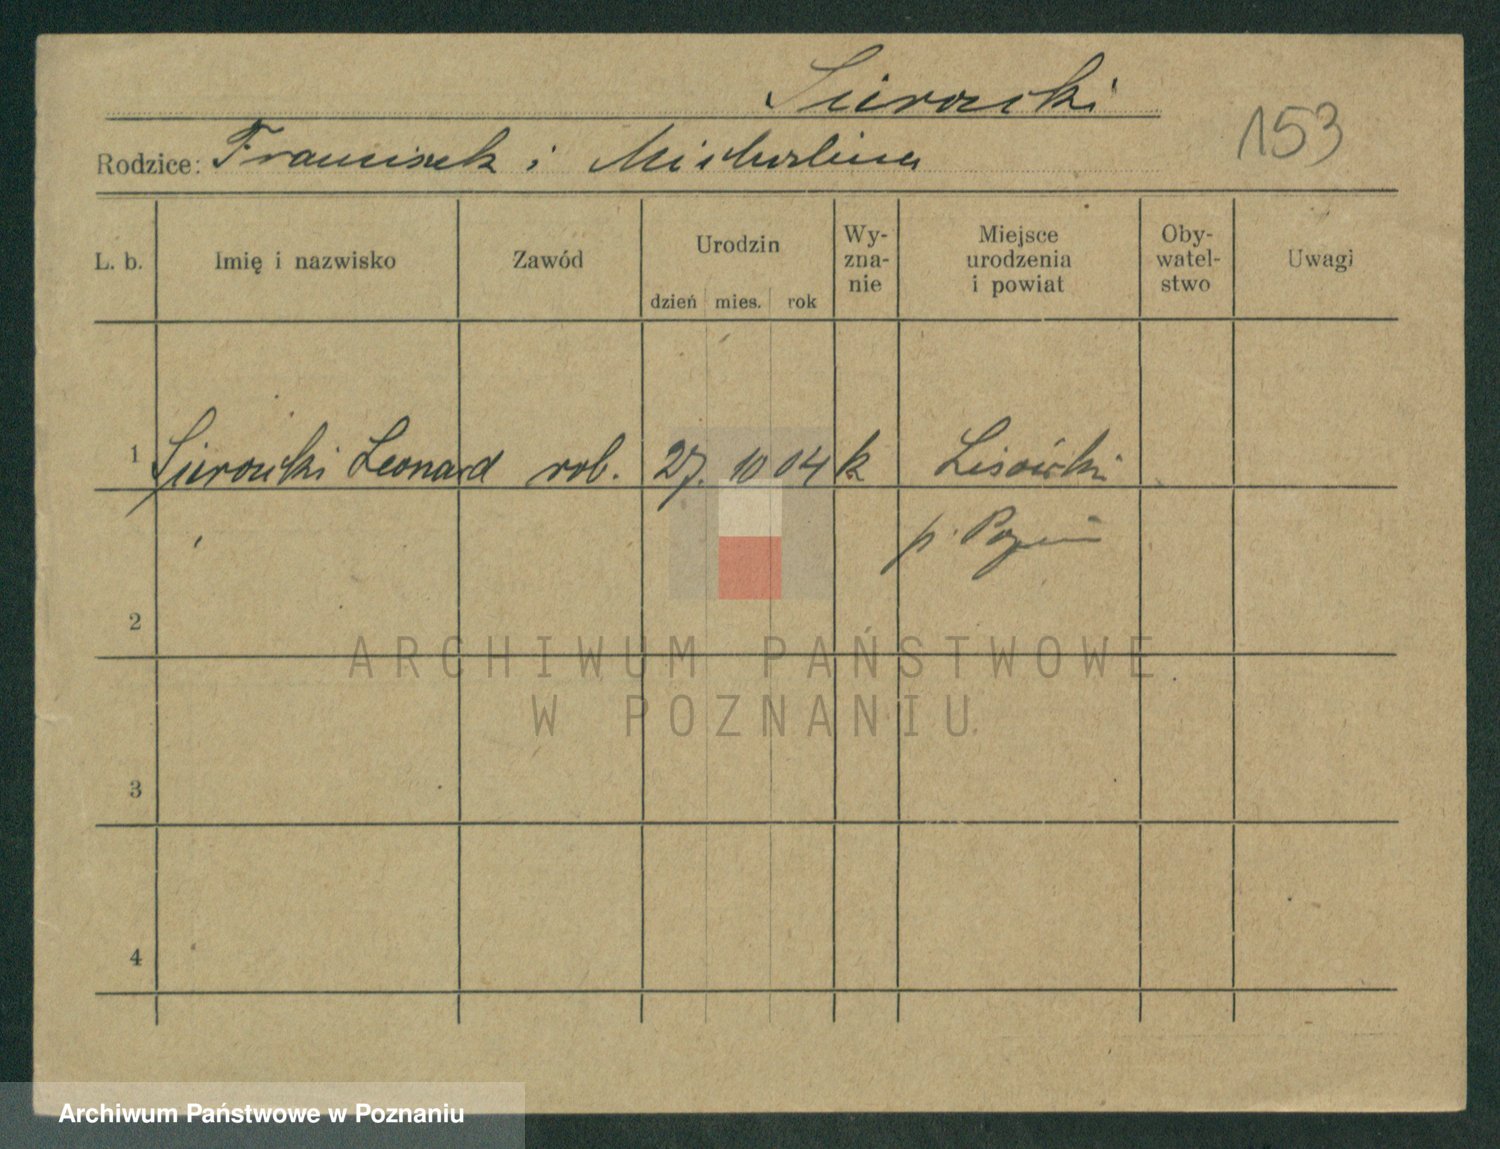 Sierocki
153
Rodzice: Franciszek i Michalina
L. b. Imię i nazwisko Zawód Urodzin dzień mies. rok Wy-zna-nie Miejsce urodzenia i powiat Oby-watel-stwo Uwagi
1 Sierocki Leonard rob. 27. 10 04 k
p.
2
ARCHIWUM PAŃSTWOWE
W POZNANIU
3
4
Archiwum Państwowe w Poznaniu